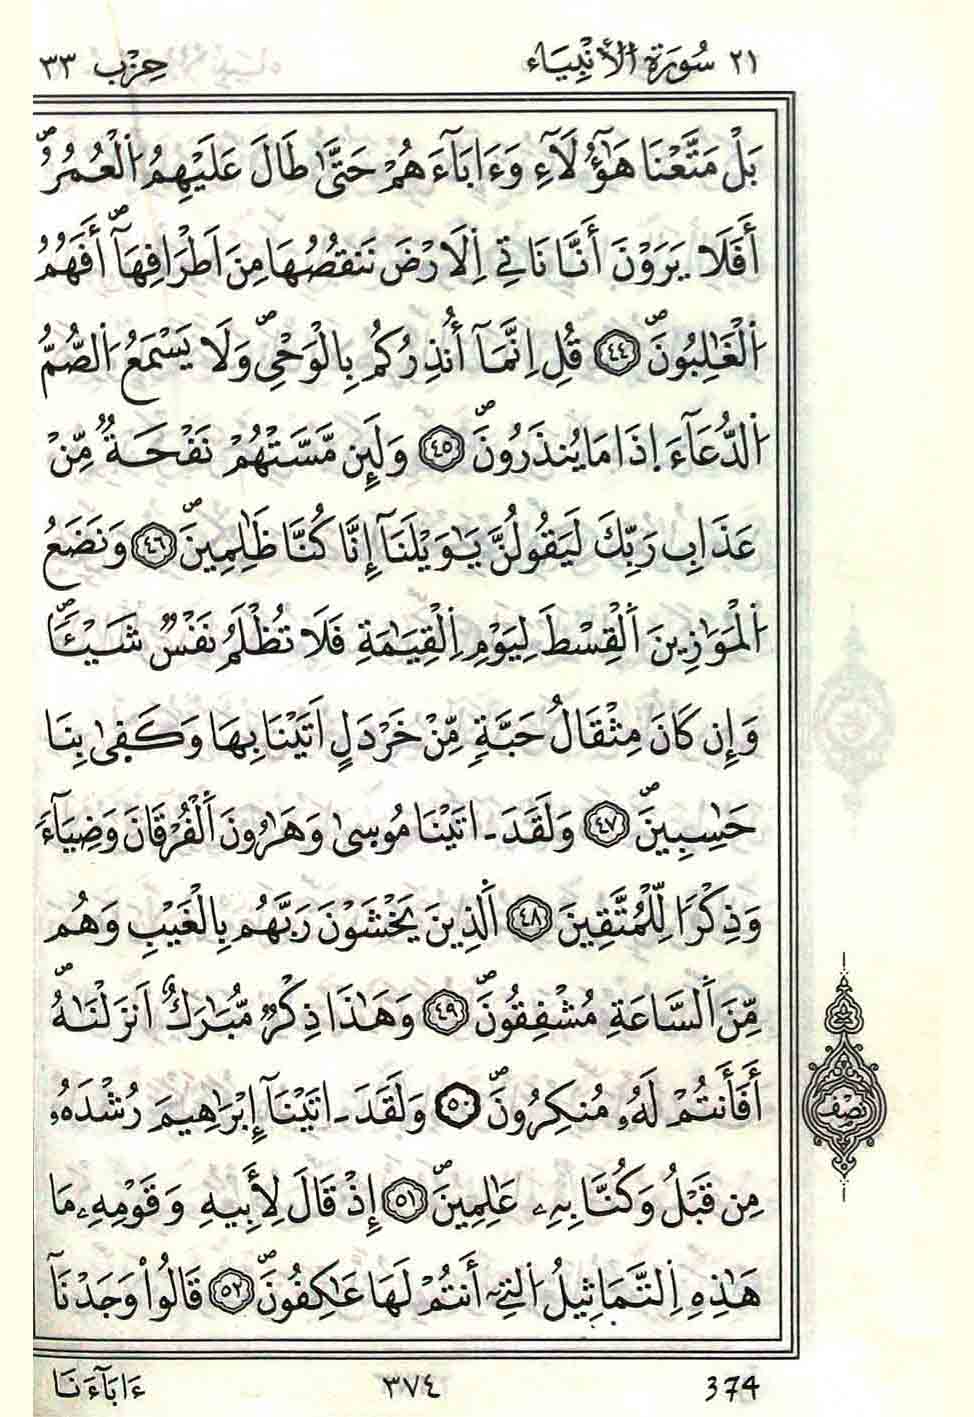 ٢١ سُورَةُ الْأَنْبِيَاء حِزْب ٣٣
بَلْ مَتَّعْنَا هَٰؤُلَآءِ وَءَابَآءَهُمْ حَتَّىٰ طَالَ عَلَيْهِمُ اُ۬لْعُمُرُۖ
أَفَلَا يَرَوْنَ أَنَّا نَاتِے اِ۬لَارْضَ نَنقُصُهَا مِنَ اَطْرَافِهَآۖ أَفَهُمُ
اُ۬لْغَٰلِبُونَۖ ٤٤ قُلِ اِنَّمَآ أُنذِرُكُم بِالْوَحْيِۖ وَلَا يَسْمَعُ اُ۬لصُّمُّ
اُ۬لدُّعَآءَ اِ۪ذَا مَا يُنذَرُونَۖ ٤٥ وَلَئِن مَّسَّتْهُمْ نَفْحَةٞ مِّنْ
عَذَابِ رَبِّكَ لَيَقُولُنَّ يَٰوَيْلَنَآ إِنَّا كُنَّا ظَٰلِمِينَۖ ٤٦ وَنَضَعُ
اُ۬لْمَوَٰزِينَ اَ۬لْقِسْطَ لِيَوْمِ اِ۬لْقِيَٰمَةِ فَلَا تُظْلَمُ نَفْسٞ شَيْـٔاٗۖ
وَإِن كَانَ مِثْقَالُ حَبَّةٖ مِّنْ خَرْدَلٍ اَتَيْنَا بِهَا وَكَف۪ىٰ بِنَا
حَٰسِبِينَۖ ٤٧ وَلَقَدَ ـ اتَيْنَا مُوس۪ىٰ وَهَٰرُونَ اَ۬لْفُرْقَانَ وَضِيَآءٗ
وَذِكْراٗ لِّلْمُتَّقِينَ ٤٨ اَ۬لذِينَ يَخْشَوْنَ رَبَّهُم بِالْغَيْبِ وَهُم
مِّنَ اَ۬لسَّاعَةِ مُشْفِقُونَۖ ٤٩ وَهَٰذَا ذِكْرٞ مُّبَٰرَكٌ اَنزَلْنَٰهُۖ
أَفَأَنتُمْ لَهُۥ مُنكِرُونَۖ ٥٠ وَلَقَدَ ـ اتَيْنَآ إِبْرَٰهِيمَ رُشْدَهُۥ
نصف
مِن قَبْلُ وَكُنَّا بِهِۦ عَٰلِمِينَۖ ٥١ إِذْ قَالَ لِأَبِيهِ وَقَوْمِهِۦ مَا
هَٰذِهِ اِ۬لتَّمَاثِيلُ اُ۬لتِےٓ أَنتُمْ لَهَا عَٰكِفُونَۖ ٥٢ قَالُواْ وَجَدْنَآ
374 ٣٧٤ ءَابَآءَنَا